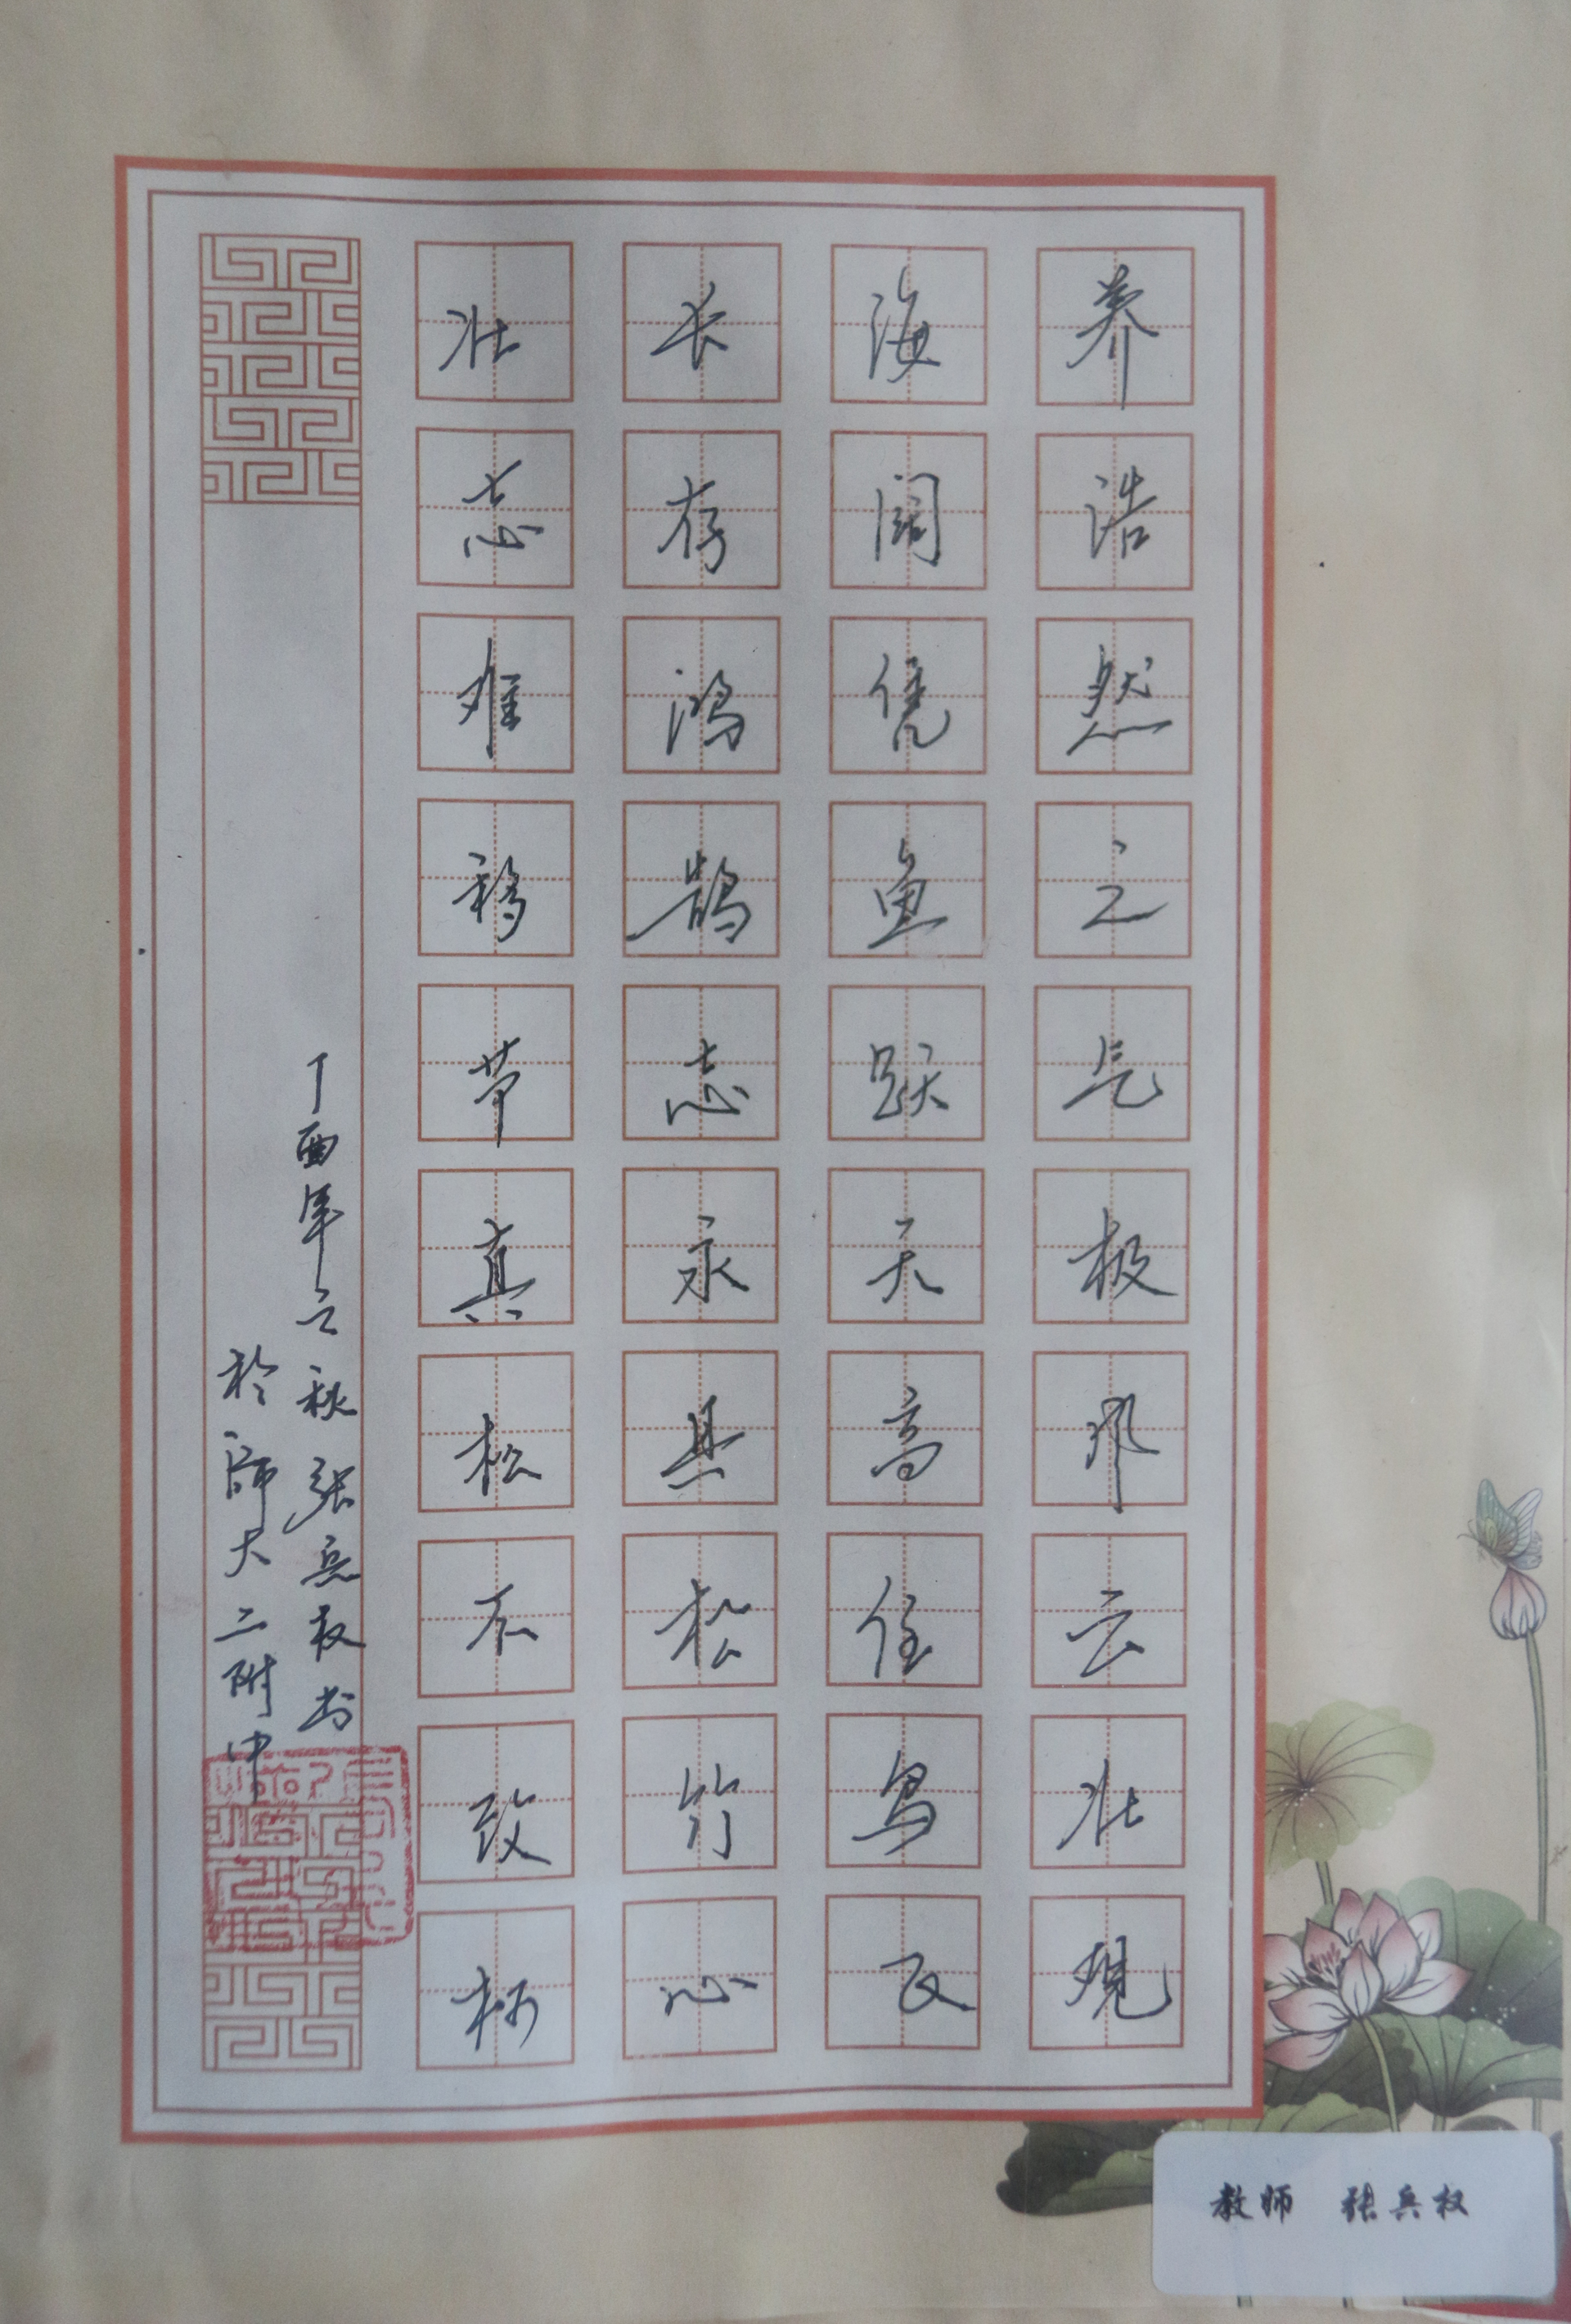 养浩然之气极风云壮观
海阔凭鱼跃天高任鸟飞
长存鸿鹄志永共松竹心
壮志难移节真松不改柯
丁酉年之秋张兵权书
於师大二附中
教师 张兵权